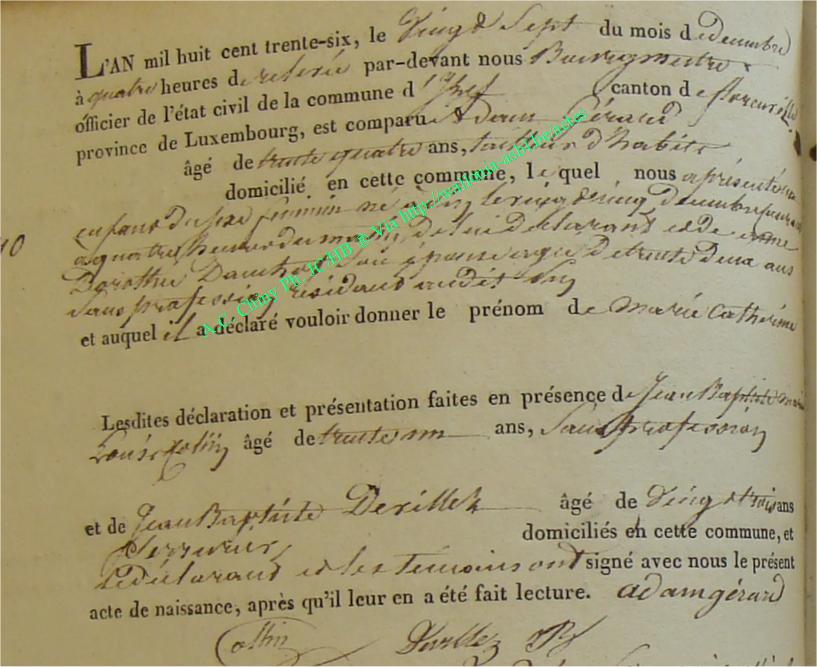 L'AN mil huit cent trente-six, le Vingt Sept du mois de decembre
à quatre heures de relevée par-devant nous Bourgmestre
officier de l'état civil de la commune d' canton de florenville
province de Luxembourg, est comparu Adam Gérard
âgé de trente quatre ans, tailleur d'habits
domicilié en cette commune, lequel nous a présenté un
enfant du sexe féminin né à le vingt cinq decembre
à quatre heures du matin, de lui déclarant et de
Dorothée son épouse agée de trente deux ans
Sans profession résidant audit
et auquel il a déclaré vouloir donner le prénom de marie Catherine
10
Lesdites déclaration et présentation faites en présence de Jean Baptiste
Louis Collin âgé de trente un ans, Sans profession
et de Jean Baptiste Devillez âgé de Vingt trois ans
Serrurier domiciliés en cette commune, et
Le déclarant et les temoins ont signé avec nous le présent
acte de naissance, après qu'il leur en a été fait lecture. adam gérard
Collin Devillez
A.E. Chiny Ph. R. HB # Via http://wallonia-asbl.